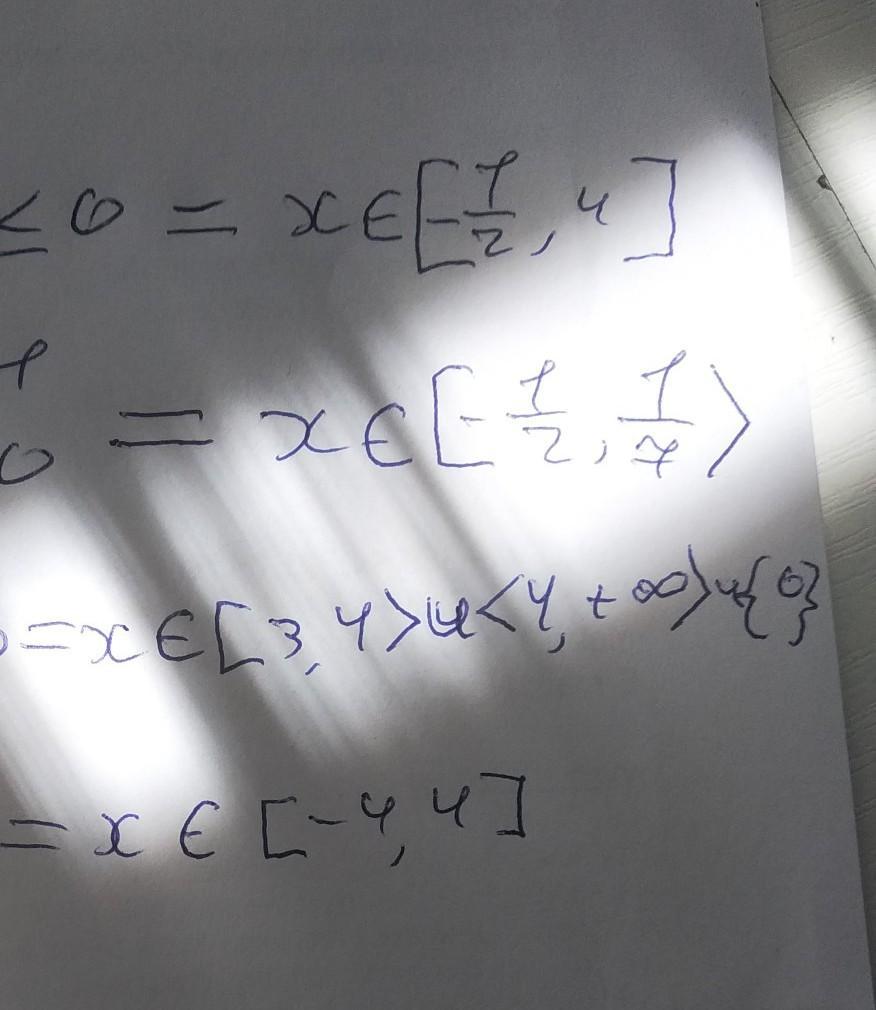 ≤ 0 = x ∈ [-1/2, 4]
1
0 = x ∈ [-1/2, 1/7>
= x ∈ [3, 4> ∪ <4, +∞> ∪ {0}
= x ∈ [-4, 4]